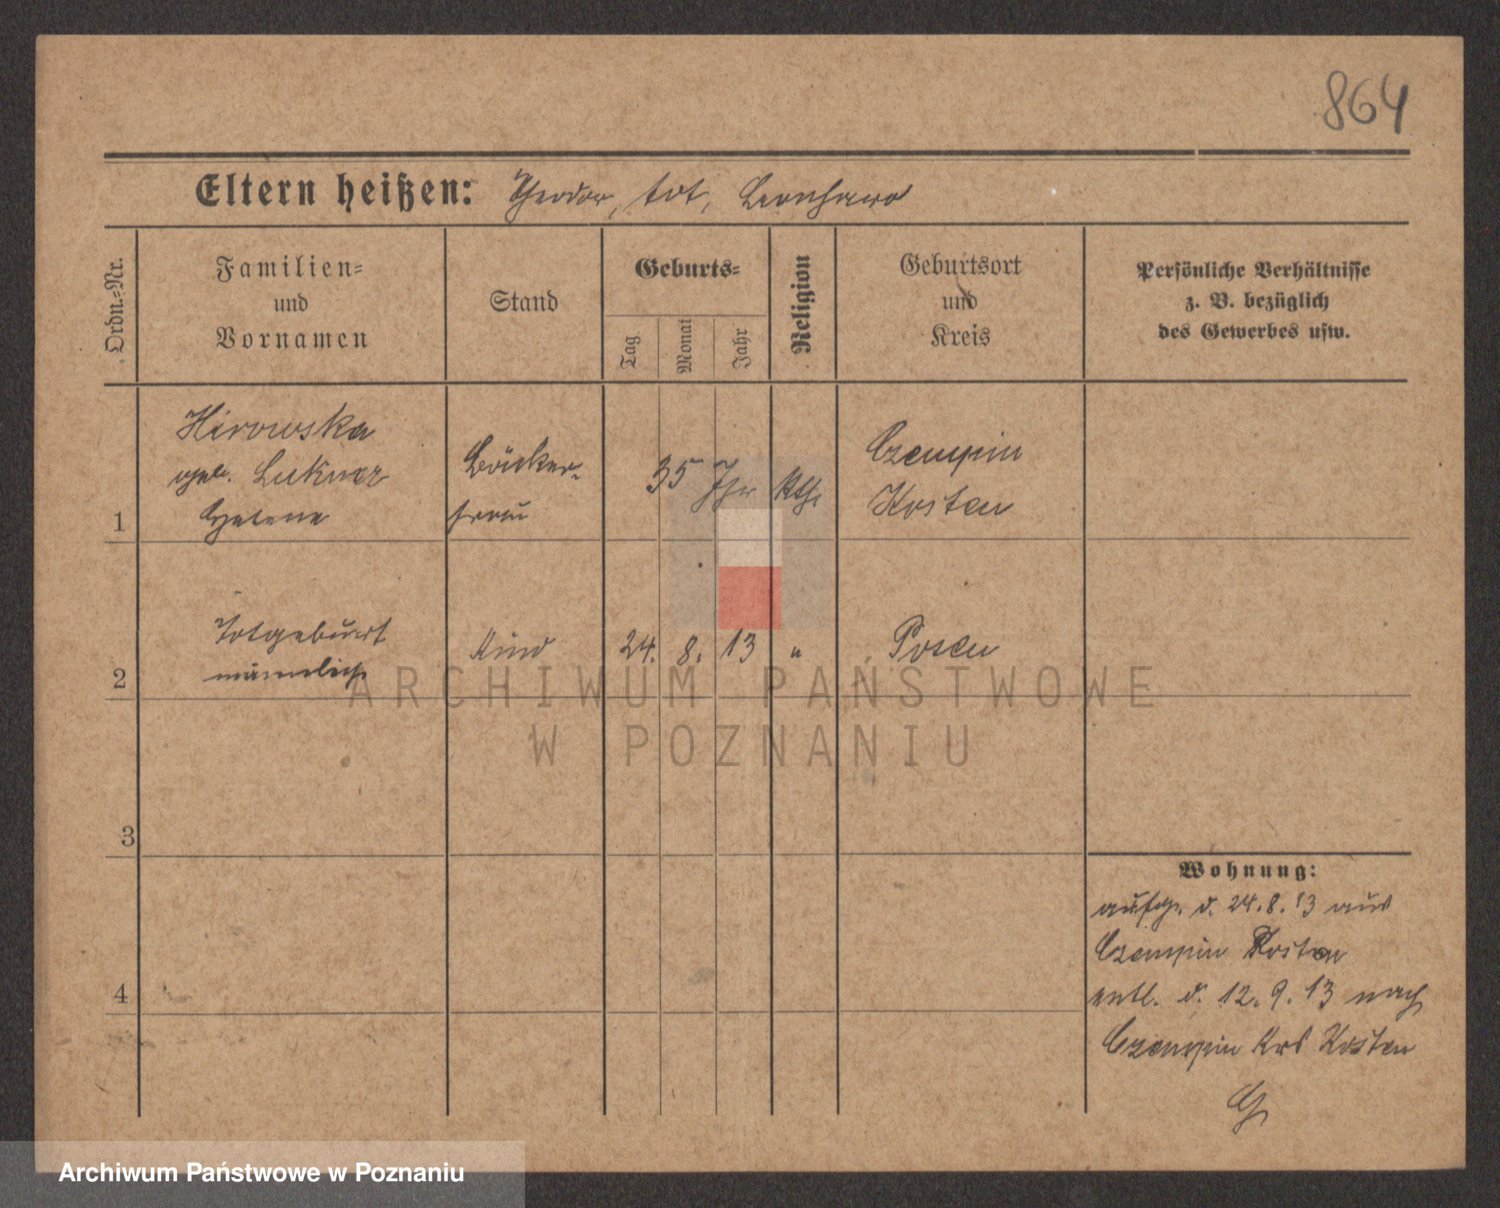 864
Eltern heißen: Theodor, tot, Leonhard
Ordn.=Nr.
Familien=
und
Vornamen
Stand
Geburts=
Tag
Monat
Jahr
Religion
Geburtsort
und
Kreis
Persönliche Verhältnisse
z. B. bezüglich
des Gewerbes usw.
1
Hirowska
geb.
Helene
Bäcker-
frau
35 Jhr
kth.
Czempin
Kosten
2
Totgeburt
männlich
Kind
24. 8. 13
"
Posen
3
4
Wohnung:
aufg. d. 24.8.13 aus
Czempin Kosten
entl. d. 12.9.13 nach
Czempin Krs Kosten
ARCHIWUM PAŃSTWOWE
W POZNANIU
Archiwum Państwowe w Poznaniu